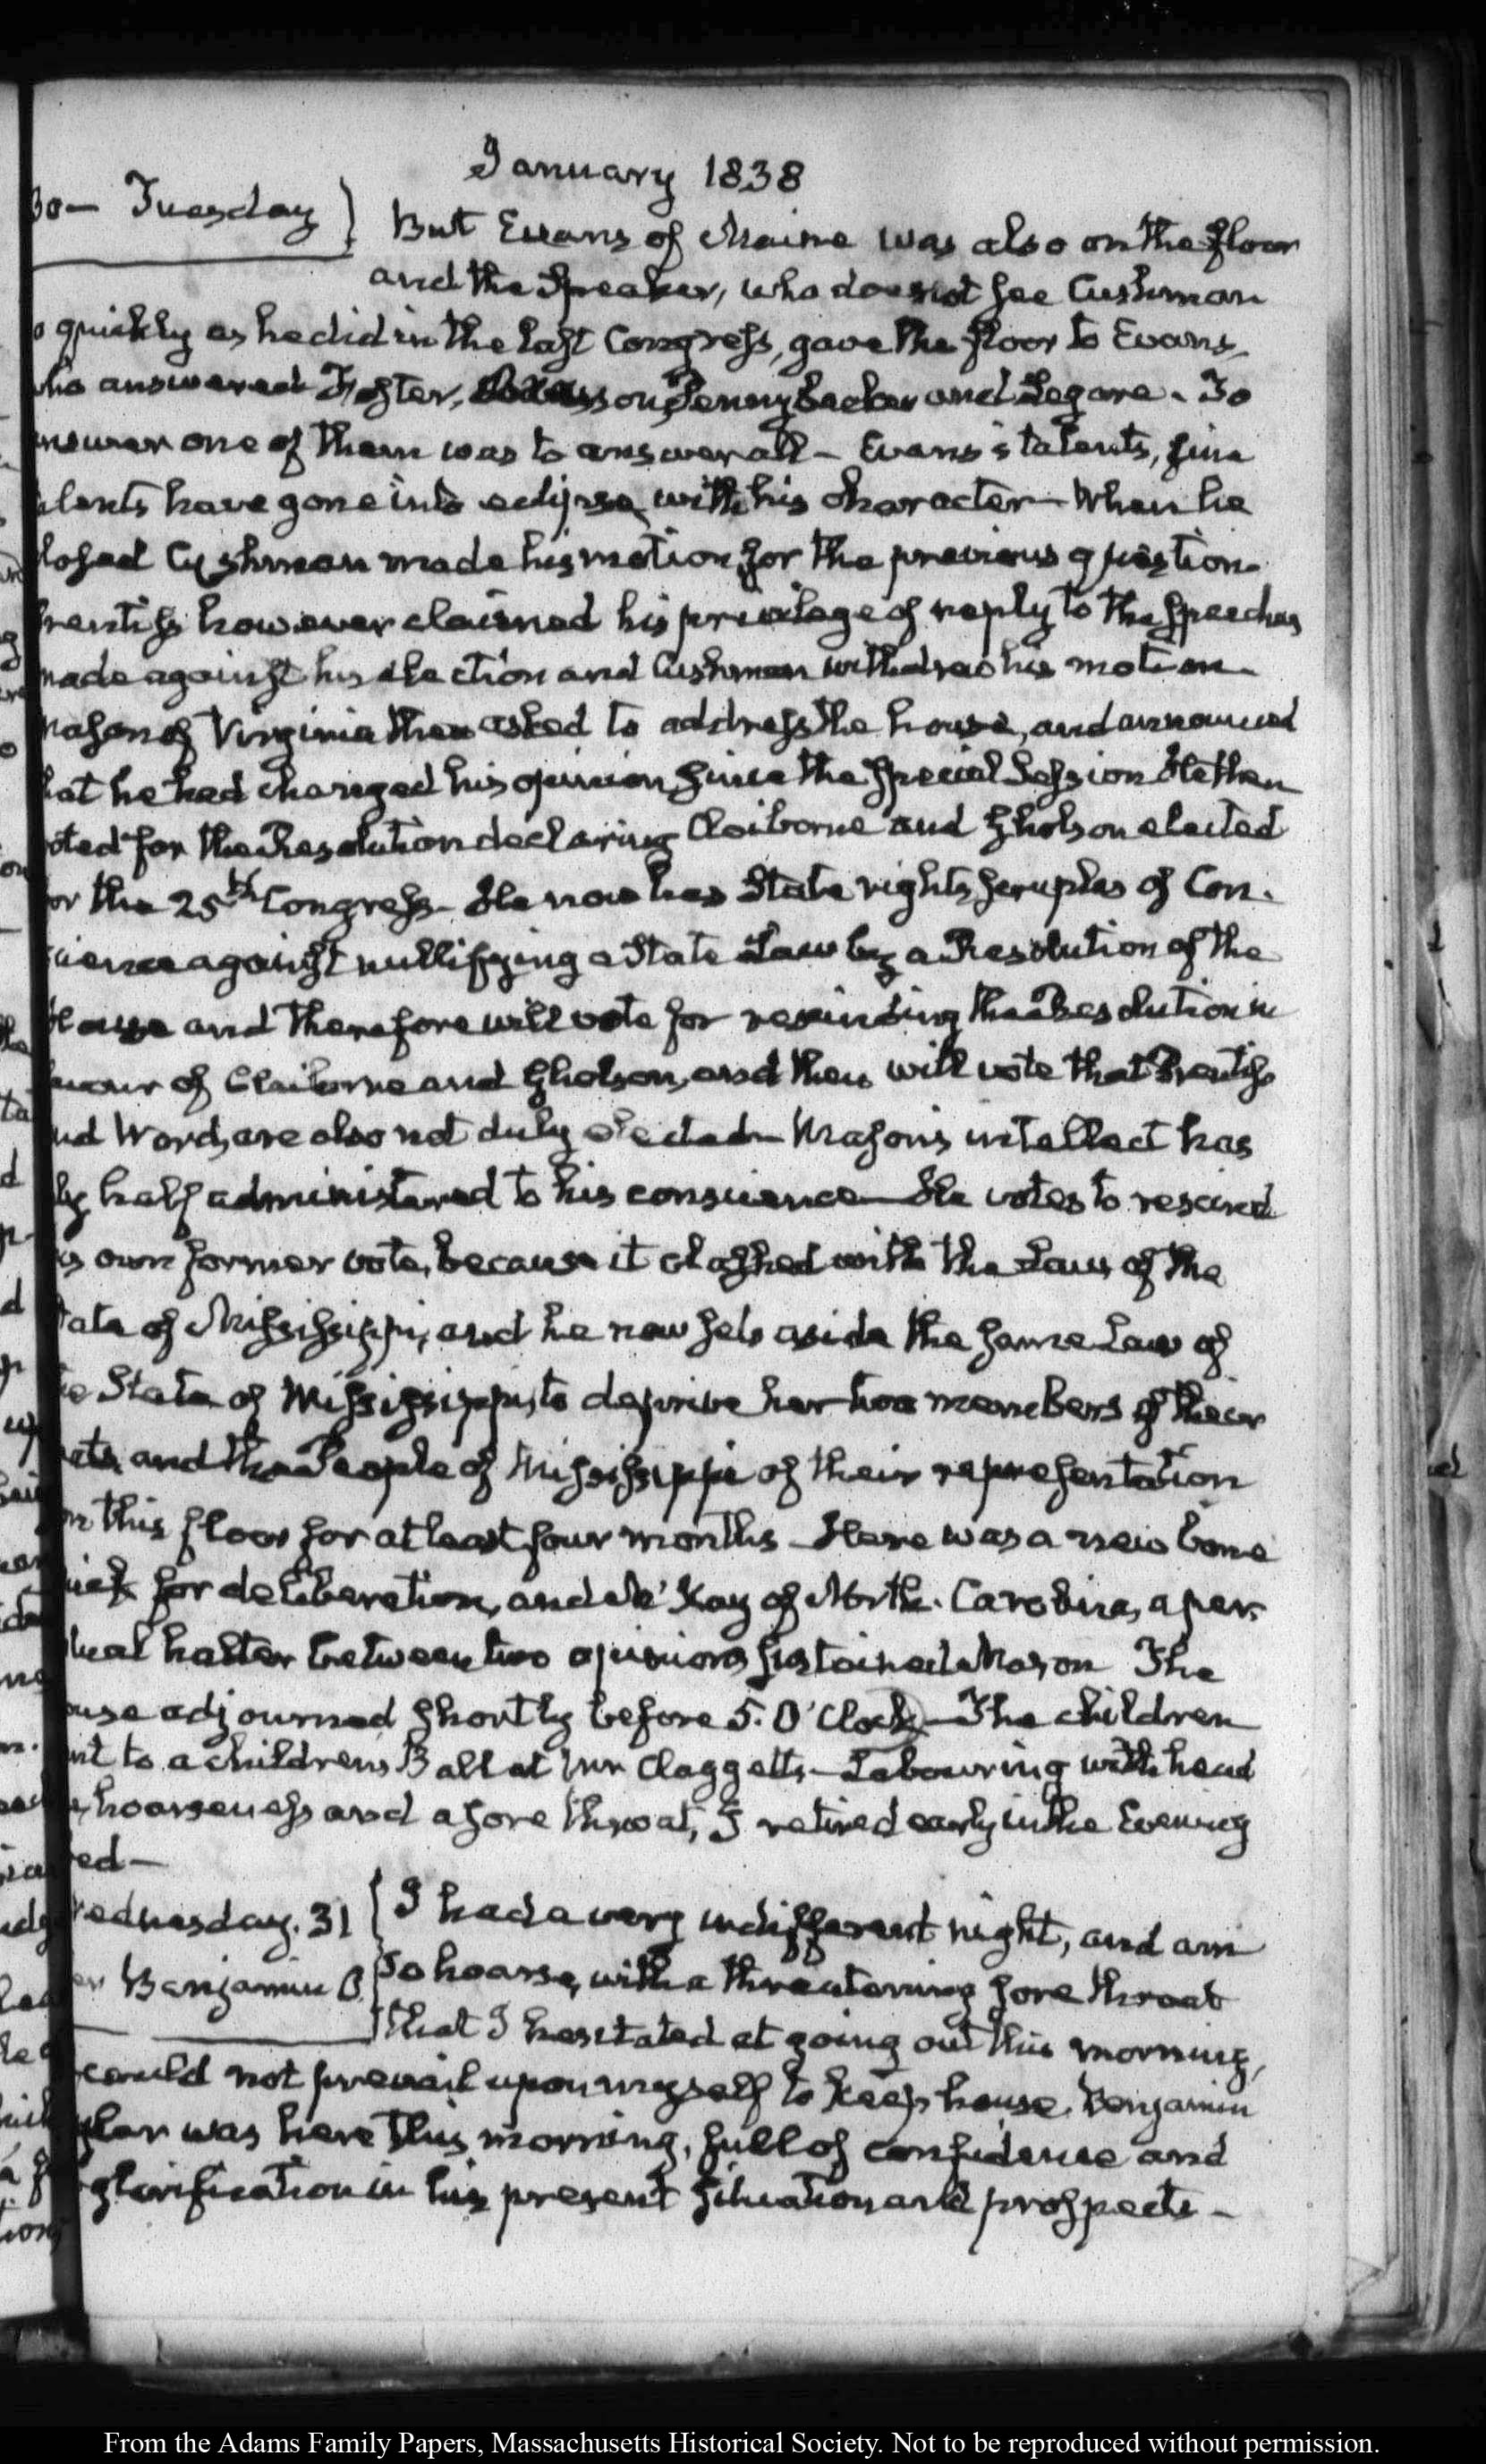 January 1838
30 — Tuesday } But Evans of Maine was also on the floor
and the Speaker, who does not see Cushman
o quickly as he did in the last Congress, gave the floor to Evans,
who answered Foster, Pennybacker and Legare. To
nswer one of them was to answer all — Evans's talents, fine
alents have gone into eclipse with his character — When he
losed Cushman made his motion for the previous question.
rentiss however claimed his privilege of reply to the speeches
made against his election and Cushman withdrew his motion.
Mason of Virginia then asked to address the house, and announced
hat he had changed his opinion since the special Session. He then
oted for the Resolution declaring Claiborne and Gholson elected
or the 25th Congress — He now has State rights scruples of Con-
science against nullifying a State Law by a Resolution of the
House and therefore will vote for rescinding the Resolution in
avour of Claiborne and Gholson, and then will vote that Prentiss
nd Word, are also not duly elected — Mason's intellect has
ly half administered to his conscience — He votes to rescind
is own former vote, because it clashed with the Law of the
tate of Mississippi, and he now sets aside the same Law of
he State of Mississippi, to deprive her two members of their
eats, and the People of Mississippi of their representation
on this floor for at least four months — Here was a new bone
for deliberation, and Mc'Kay of North-Carolina, a per-
tual halter between two opinions sustained Mason The
ouse adjourned shortly before 5. O'Clock — The children
nt to a children's Ball at Mr Claggett's — Labouring with head
hoarseness and a sore throat, I retired early in the Evening
ed —
Wednesday. 31 { I had a very indifferent night, and am
er Benjamin O. so hoarse, with a threatening sore throat
that I hesitated at going out this morning,
could not prevail upon myself to keep house. Benjamin
yler was here this morning, full of confidence and
glorification in his present situation and prospects —
From the Adams Family Papers, Massachusetts Historical Society. Not to be reproduced without permission.